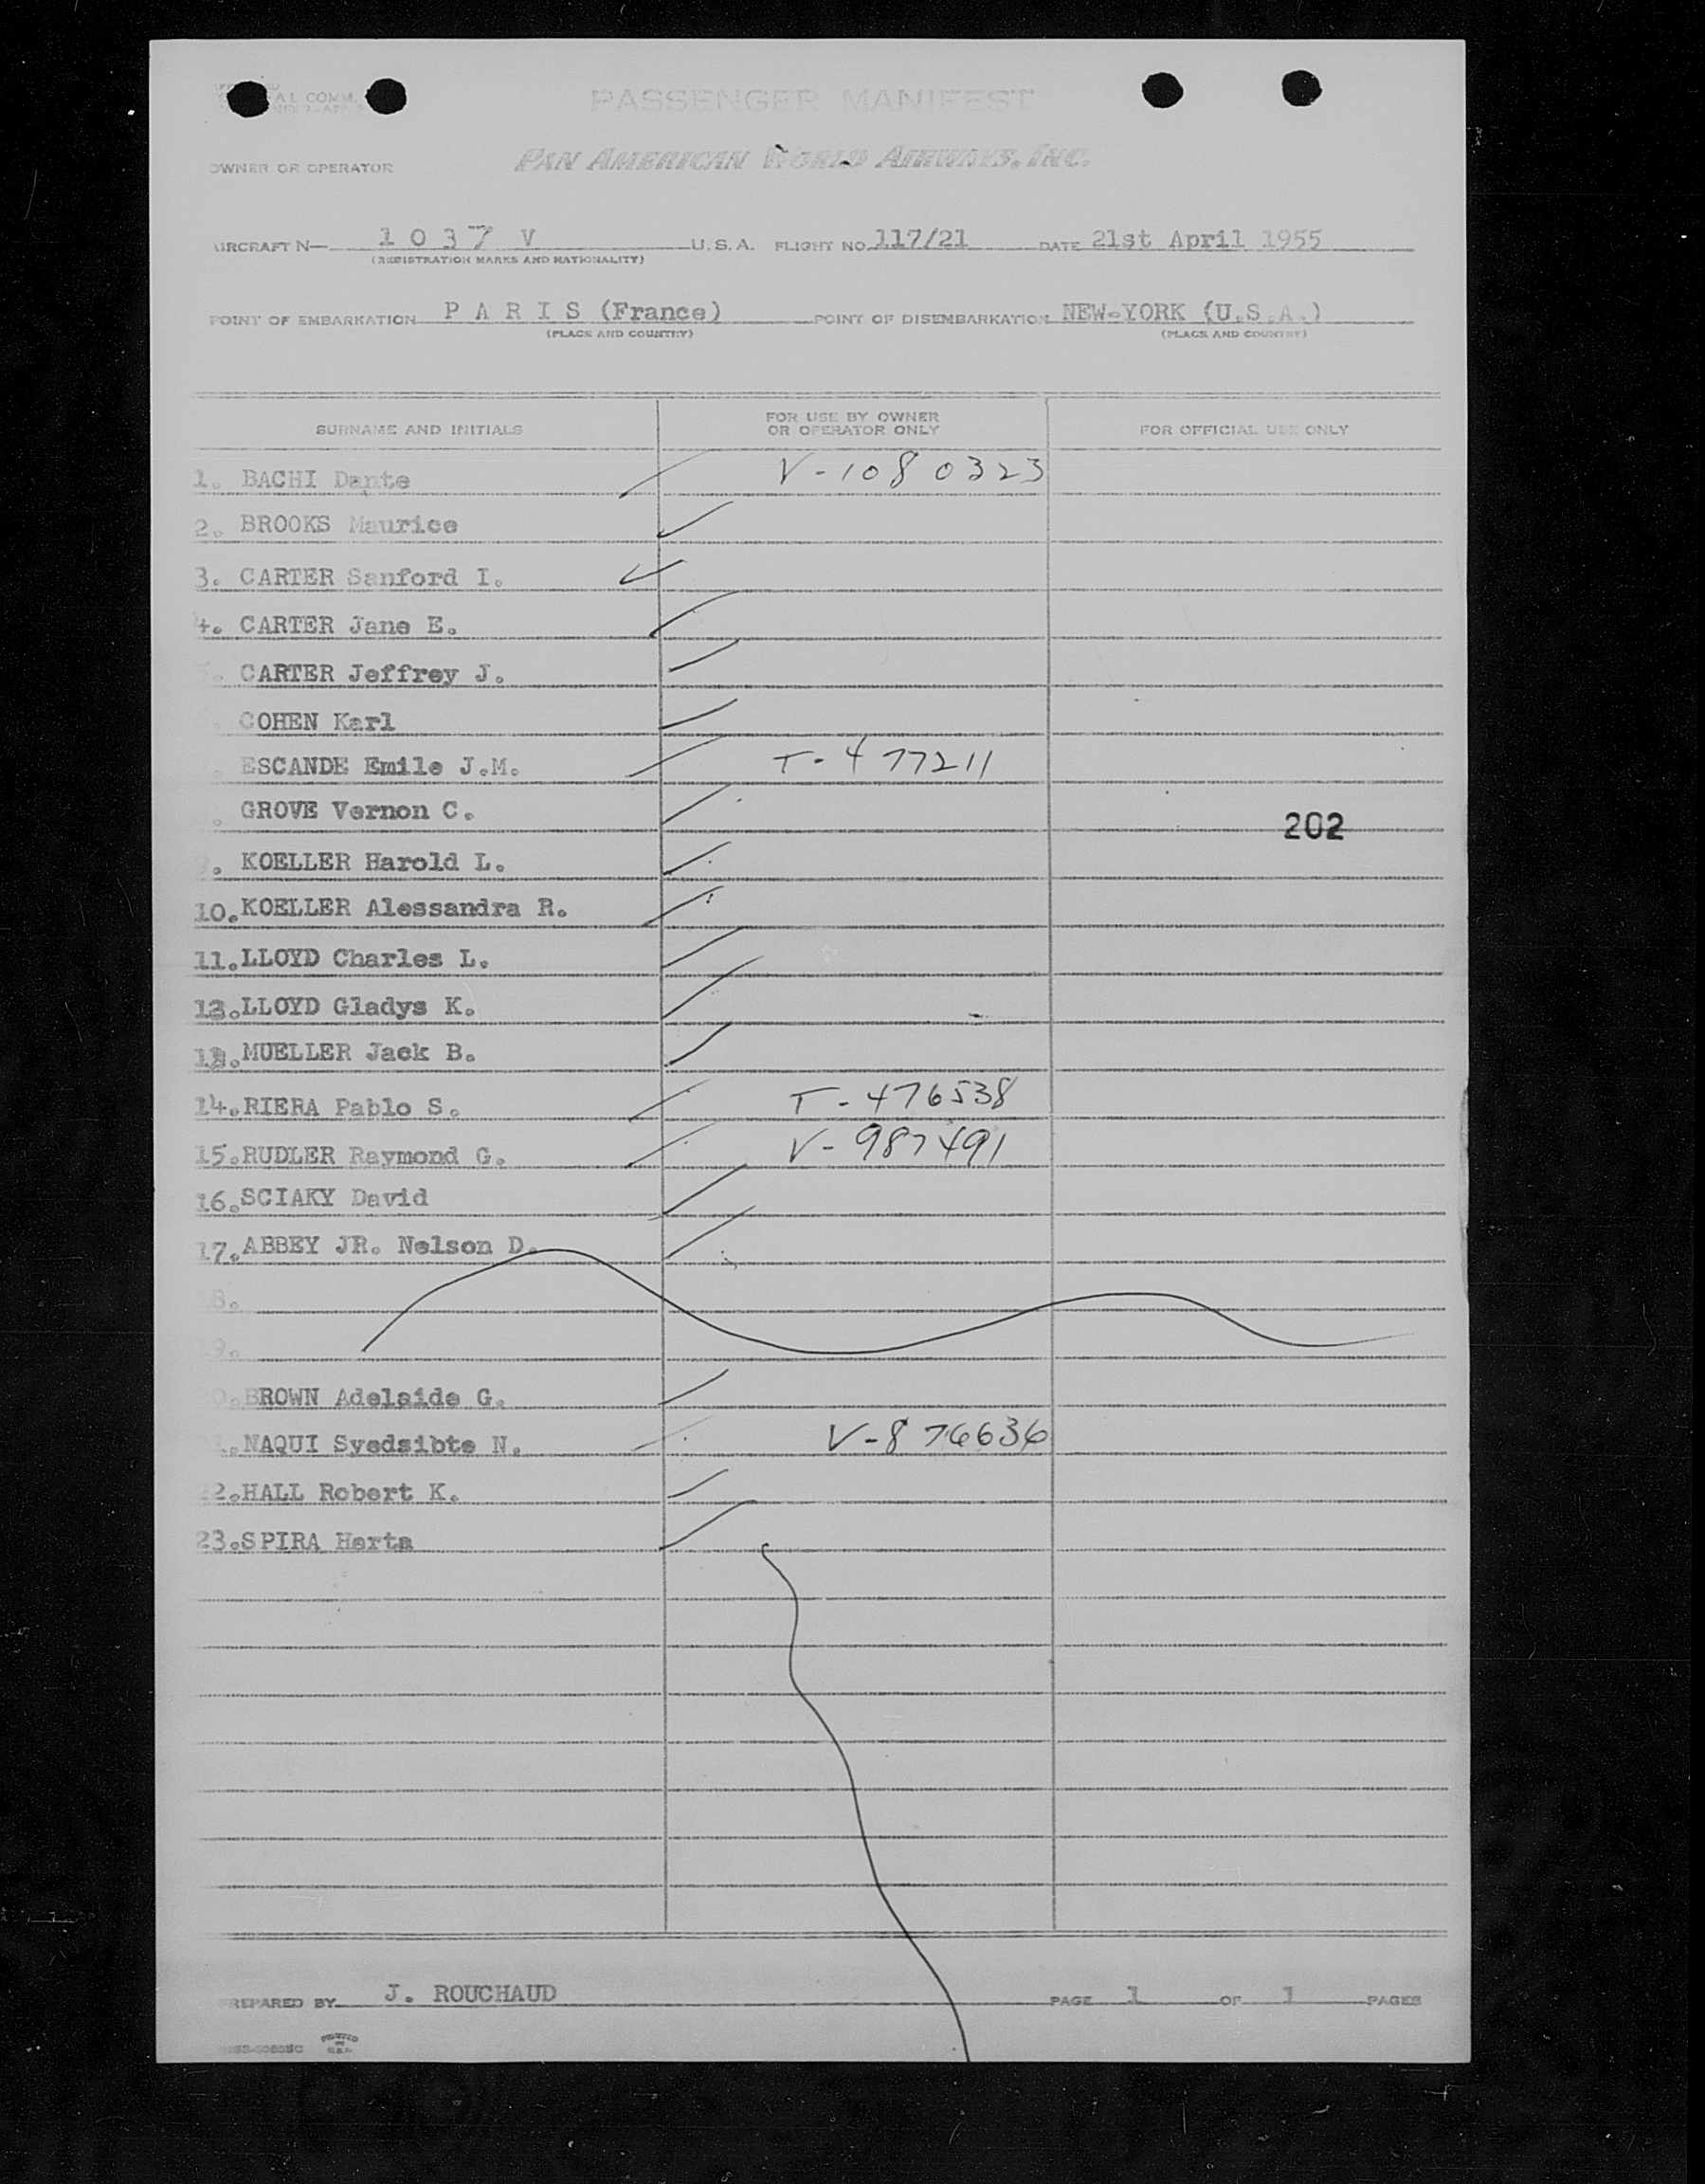 AL COMM.
PASSENGER MANIFEST
OWNER OR OPERATOR PAN AMERICAN WORLD AIRWAYS, INC.
AIRCRAFT N— 1 0 3 7 V U.S.A. FLIGHT NO. 117/21 DATE 21st April 1955
(REGISTRATION MARKS AND NATIONALITY)
POINT OF EMBARKATION P A R I S (France) POINT OF DISEMBARKATION NEW-YORK (U.S.A.)
(PLACE AND COUNTRY) (PLACE AND COUNTRY)
SURNAME AND INITIALS FOR USE BY OWNER OR OPERATOR ONLY FOR OFFICIAL USE ONLY
1. BACHI Dante V-1080323
2. BROOKS Maurice
3. CARTER Sanford I.
4. CARTER Jane E.
. CARTER Jeffrey J.
COHEN Karl
ESCANDE Emile J.M. T-477211
. GROVE Vernon C. 202
. KOELLER Harold L.
10. KOELLER Alessandra R.
11. LLOYD Charles L.
12. LLOYD Gladys K.
13. MUELLER Jack B.
14. RIERA Pablo S. T-476538
15. RUDLER Raymond G. V-987491
16. SCIAKY David
17. ABBEY JR. Nelson D.
8.
9.
0. BROWN Adelaide G.
. NAQUI Syedsibte N. V-876636
2. HALL Robert K.
23. SPIRA Herta
PREPARED BY J. ROUCHAUD PAGE 1 OF 1 PAGES
PRINTED IN U.S.A.